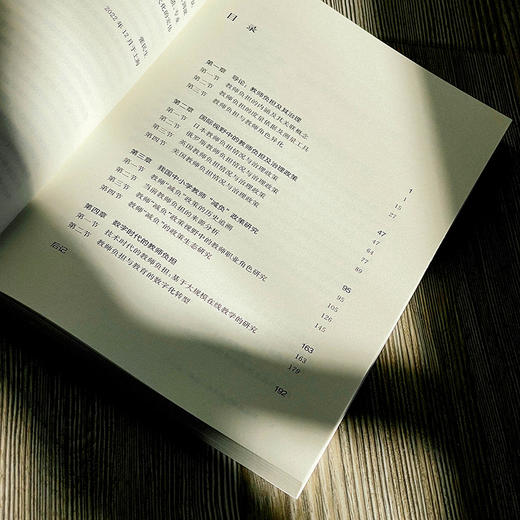 张民生
2022年12月于上海
目 录
第一章 导论：教师负担及其治理 1
第一节 教师负担的内涵及其关联概念 1
第二节 教师负担的度量依据及测量工具 15
第三节 教师负担与教师角色异化 27
第二章 国际视野中的教师负担及治理政策 47
第一节 日本教师负担情况与治理政策 47
第二节 俄罗斯教师负担情况与治理政策 64
第三节 英国教师负担情况与治理政策 77
第四节 美国教师负担情况与治理政策 89
第三章 我国中小学教师“减负”政策研究 95
第一节 教师“减负”政策的历史追溯 95
第二节 当前教师负担的来源分析 105
第三节 教师“减负”政策视野中的教师职业角色研究 126
第四节 教师“减负”的政策生态研究 145
第四章 数字时代的教师负担 163
第一节 技术时代的教师负担：基于大规模在线教学的研究 163
第二节 教师负担与教育的数字化转型 179
后记 192